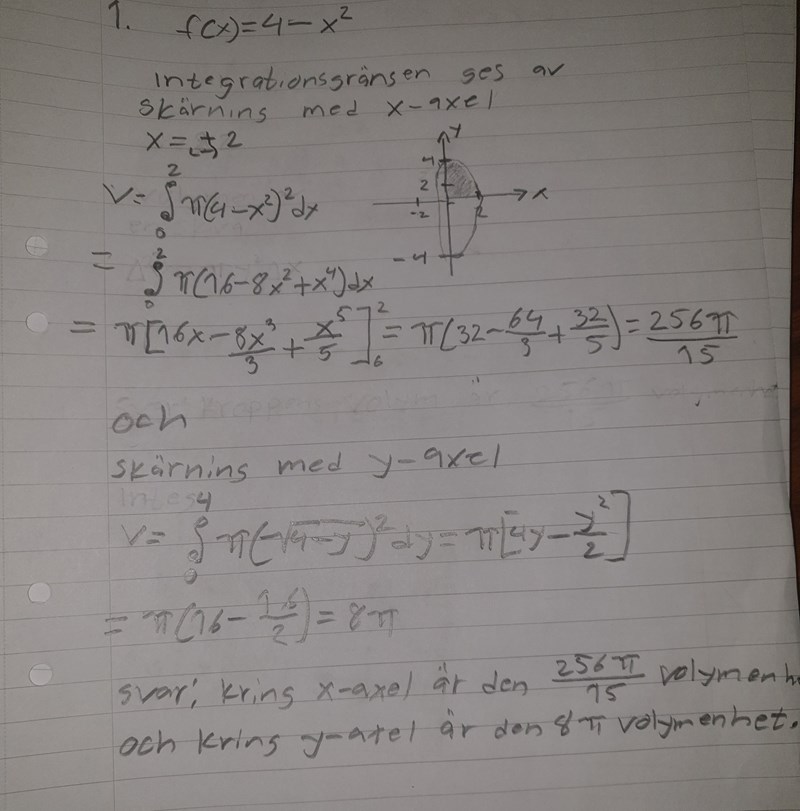 1. f(x)=4-x²
Integrationsgränsen ges av
skärning med x-axel
x = ± 2
V= ∫₀² π(4-x²)² dx
= ∫₀² π(16-8x²+x⁴)dx
= π[16x - 8x³/3 + x⁵/5]₀² = π(32 - 64/3 + 32/5) = 256π/15
y
4
2
x
-2
2
-4
och
skärning med y-axel
V= ∫₀⁴ π(√4-y)² dy = π[4y - y²/2]
= π(16 - 16/2) = 8π
svar: kring x-axel är den 256π/15 volymenh
och kring y-axel är den 8π volymenhet.